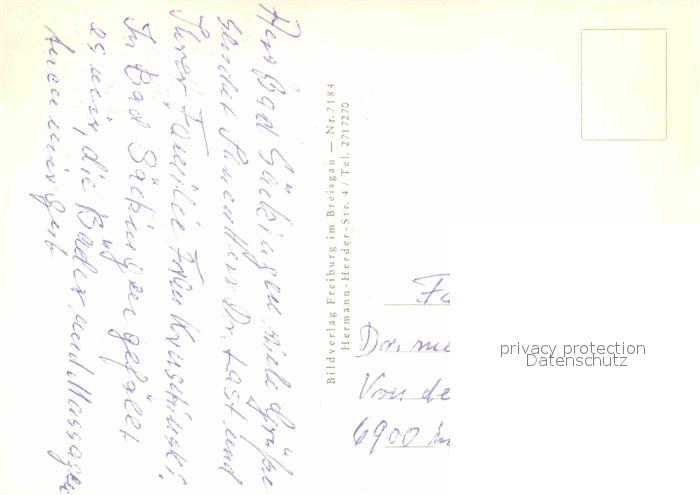 Aus Bad Säckingen viele Grüße
sendet Ihnen Herr Dr. Last und
Ihrer Familie Frau
In Bad Säckingen gefällt
es mir, die Bäder und Massagen
tuen mir gut
Bildverlag Freiburg im Breisgau — Nr. 7184
Hermann-Herder-Str. 4 / Tel. 2717270
Fa
Dr. me
Von de
6900
privacy protection
Datenschutz